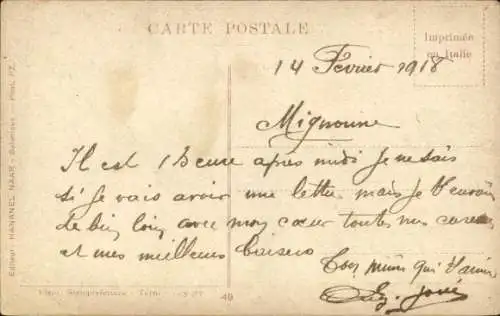 CARTE POSTALE
Imprimée
en Italie
14 Fevrier 1918
Mignonne
Il est 1 heure après midi Je ne sais
si je vais avoir une lettre mais je t'envoie
de bien loin avec mon cœur toutes mes caresses
et mes meilleurs baisers
Ton qui t'aime
Editeur: HANANEL NAAR - Salonique
49